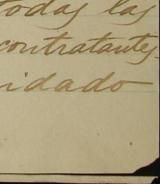 todas las
contratantes
idado